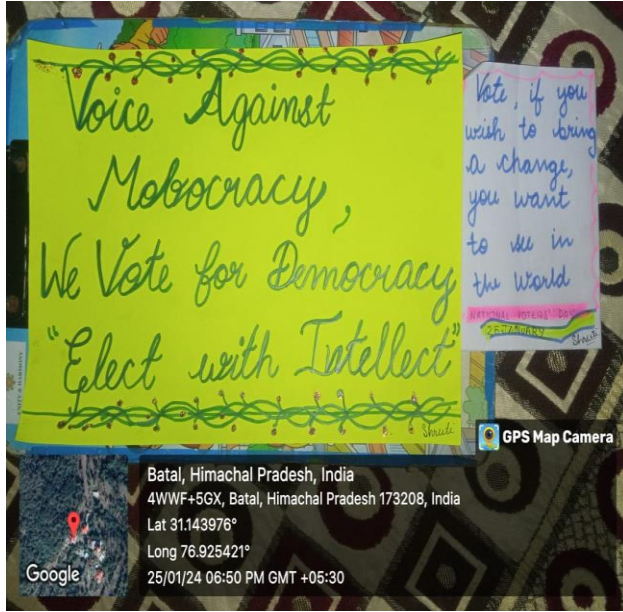 Voice Against
Mobocracy,
We Vote for Democracy
"Elect with Intellect"
Shruti
Vote, if you
wish to bring
a change,
you want
to see in
the World
NATIONAL VOTERS' DAY
25 JANUARY
Shruti
UNITY & HARMONY
GPS Map Camera
Batal, Himachal Pradesh, India
4WWF+5GX, Batal, Himachal Pradesh 173208, India
Lat 31.143976°
Long 76.925421°
25/01/24 06:50 PM GMT +05:30
Google